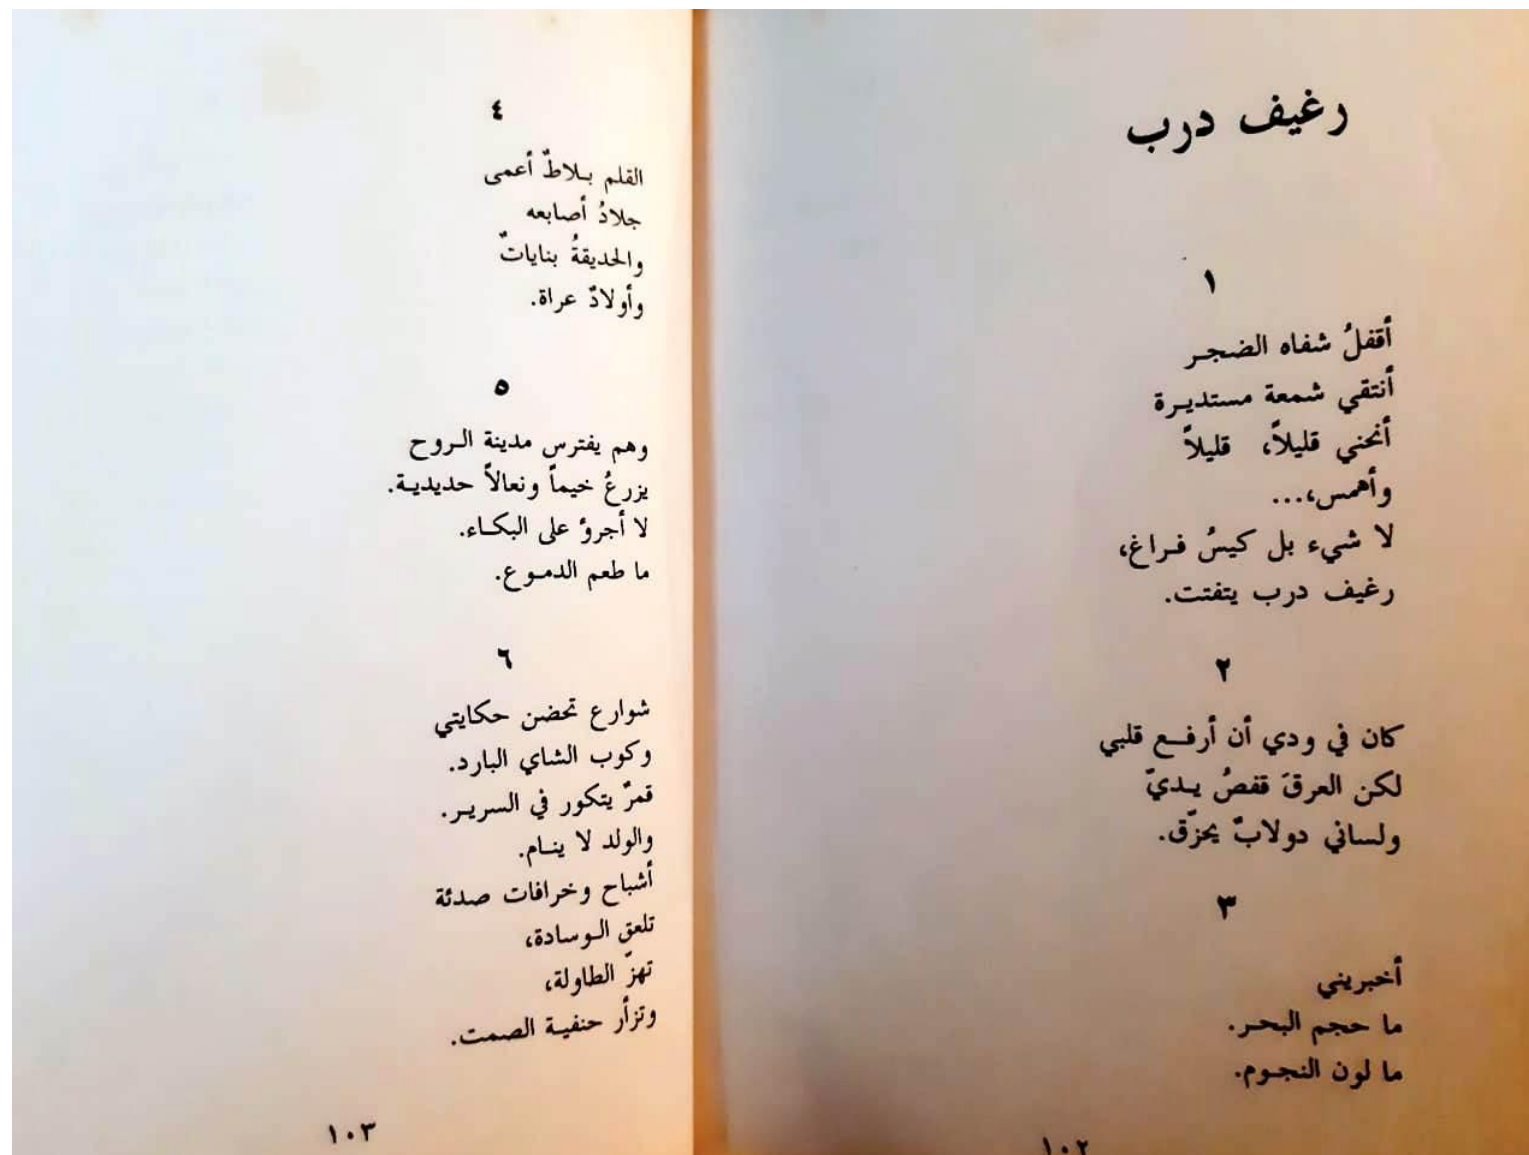 رغيف درب
١
أقفلُ شفاه الضجر
أنتقي شمعة مستديرة
أنحني قليلاً، قليلاً
وأهمس،...
لا شيء بل كيسُ فراغ،
رغيف درب يتفتت.
٢
كان في ودي أن أرفع قلبي
لكن العرقَ قفصُ يديّ
ولساني دولابٌ يحزّق.
٣
أخبريني
ما حجم البحر.
ما لون النجوم.
١٠٢
٤
القلم بلاطٌ أعمى
جلادُ أصابعه
والحديقةُ بناياتٌ
وأولادٌ عراة.
٥
وهم يفترس مدينة الروح
يزرعُ خيماً ونعالاً حديدية.
لا أجرؤ على البكاء.
ما طعم الدموع.
٦
شوارع تحضن حكايتي
وكوب الشاي البارد.
قمرٌ يتكور في السرير.
والولد لا ينام.
أشباح وخرافات صدئة
تلعق الوسادة،
تهزّ الطاولة،
وتزأر حنفية الصمت.
١٠٣